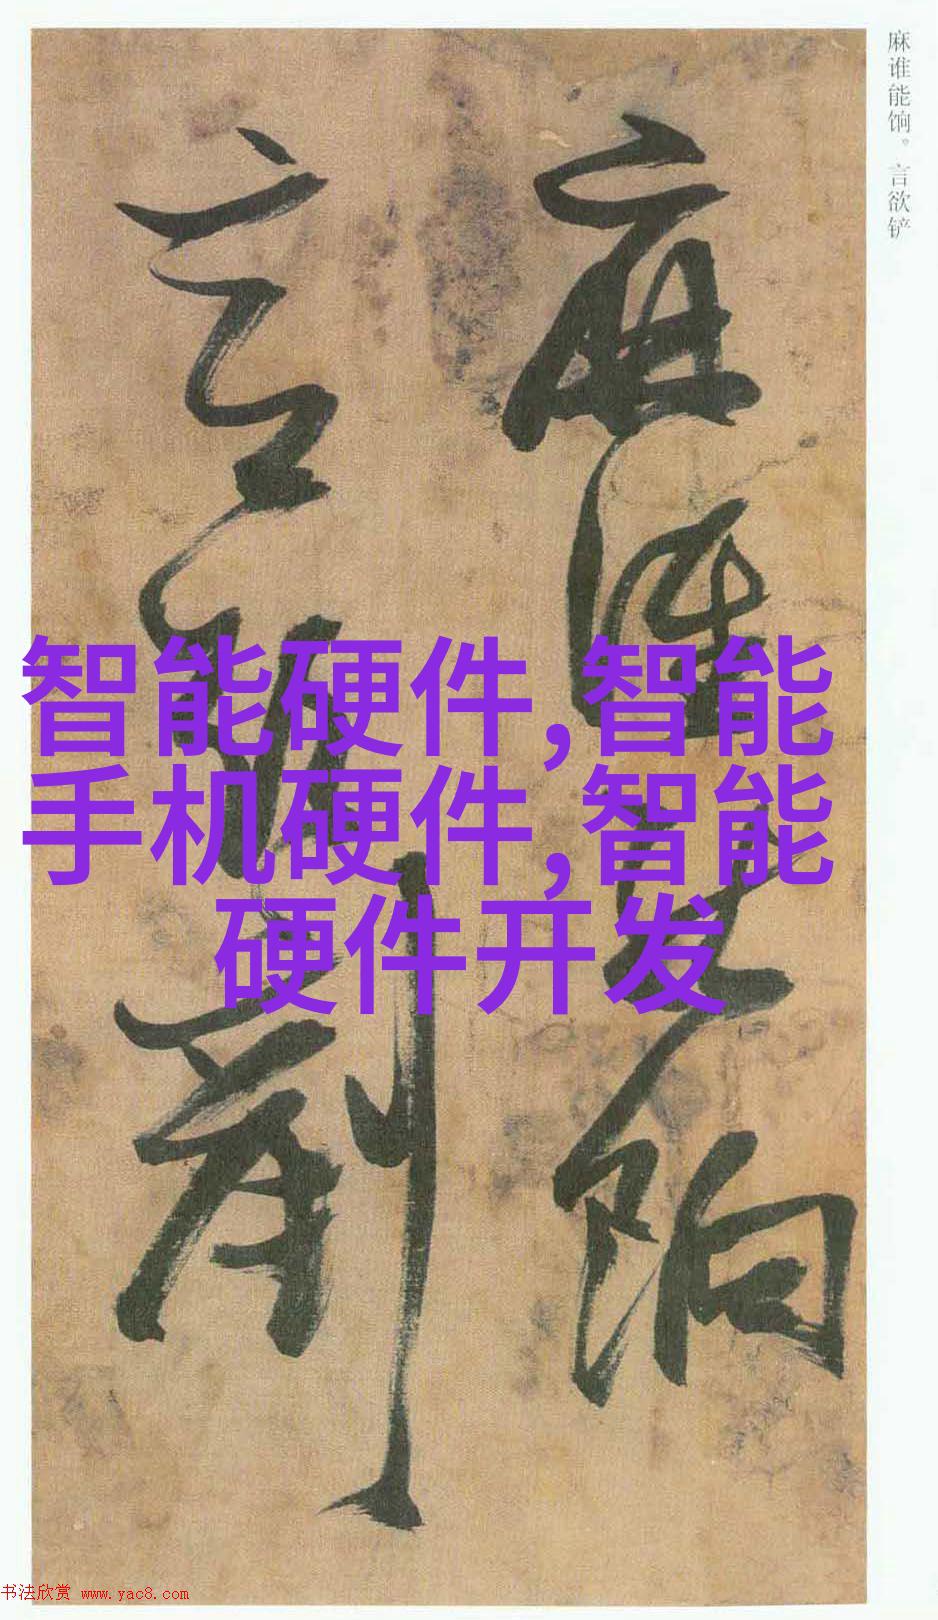 麻谁能饷。言欲铲
麻谁能饷
言欲剷
智能硬件,智能
手机硬件,智能
硬件开发
书法欣赏 www.yac8.com